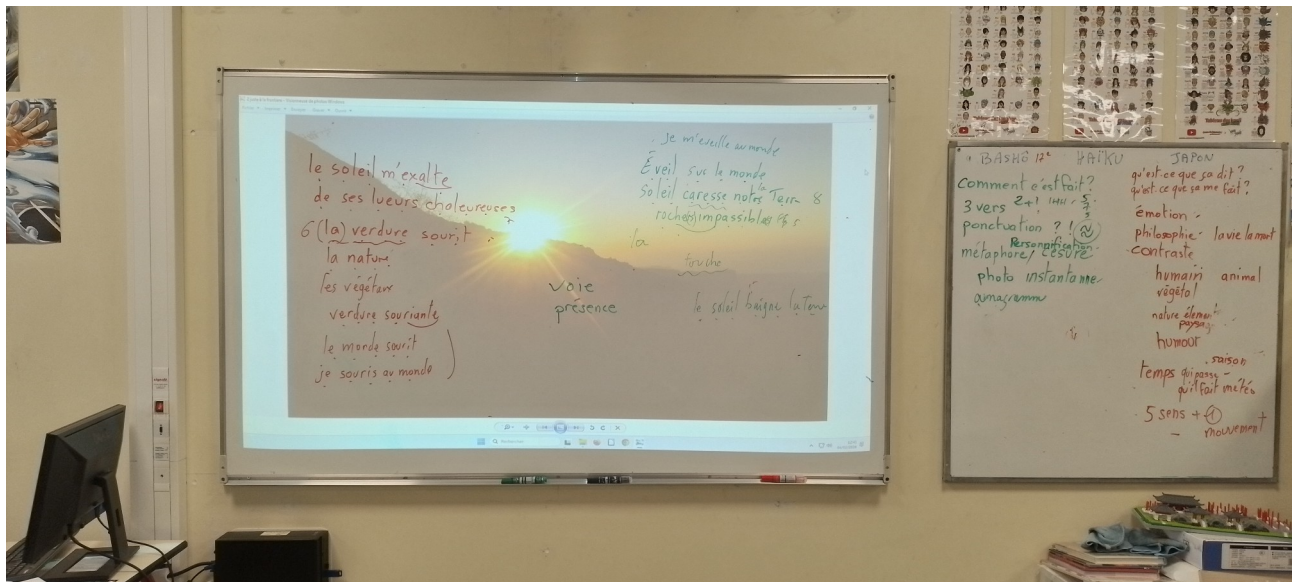 le soleil m'exalte
de ses lueurs chaleureuses
6 (la) verdure sourit
la nature
les végétaux
verdure souriante
le monde sourit
je souris au monde
voie
présence
je m'éveille au monde
Éveil sur le monde
soleil caresse notre Terre 8
rochers impassibles
la
touche
le soleil baigne la Terre
BASHÔ 17e HAÏKU JAPON
comment c'est fait?
3 vers 2+1 5
7
5
ponctuation ? !
Personnification
métaphore / césure
photo instantanée
anagramme
qu'est-ce que ça dit?
qu'est-ce que sa me fait?
émotion
philosophie - la vie la mort
- contraste
humain animal
végétal
nature élément
paysage
humour
saison
temps qui passe -
qu'il fait météo
5 sens + 1 +
mouvement